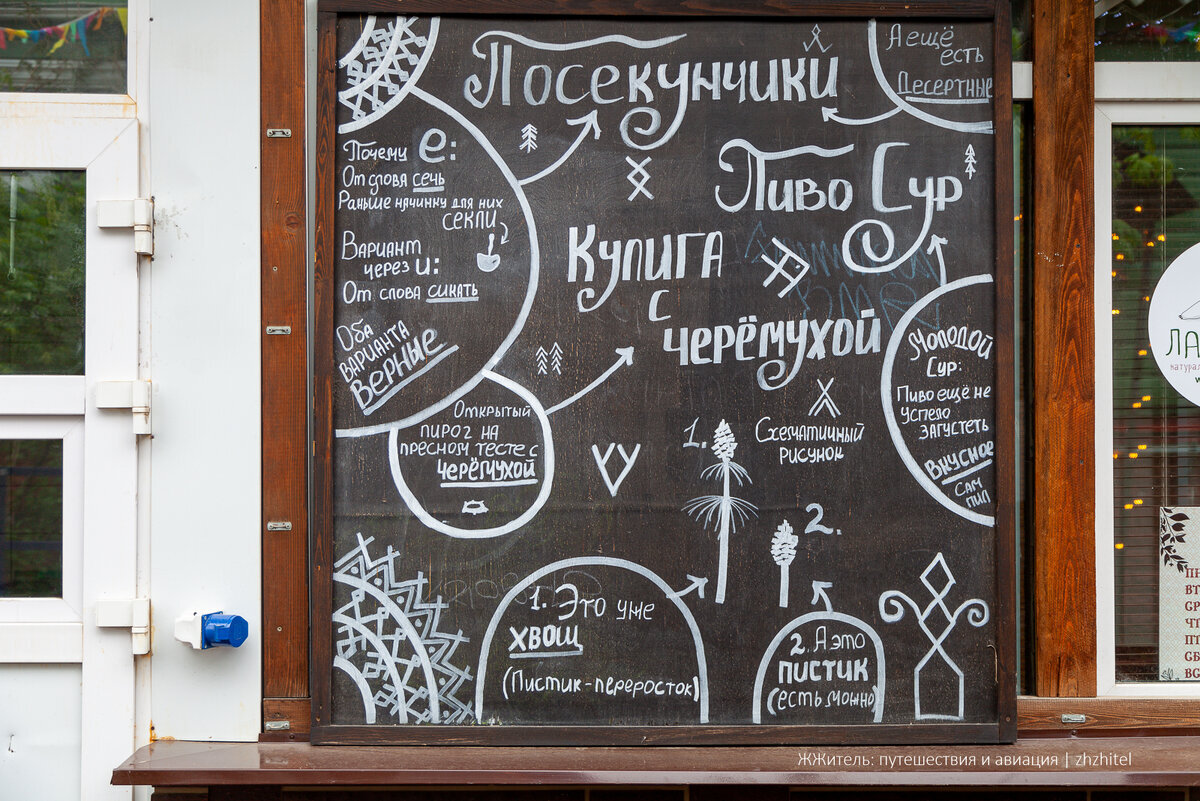 Посекунчики
А ещё
есть
Десертные
Почему е:
От слова сечь
Раньше начинку для них
секли
Вариант
через и:
От слова сикать
Оба
варианта
верные
Пиво Сур
Кулига
с
черёмухой
Открытый
пирог на
пресном тесте с
черёмухой
Молодой
Сур:
Пиво ещё не
успело
загустеть
Вкусное
Сам
пил
1.
Схематичный
рисунок
2.
1. Это уже
хвощ
(Пистик-переросток)
2. А это
пистик
(есть можно)
ЖЖитель: путешествия и авиация | zhzhitel